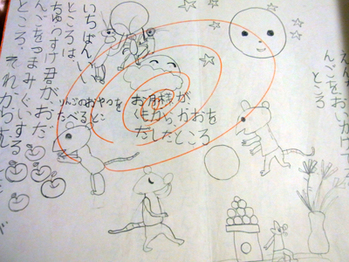 えんぴ
んごをおいかけする
ところ
お月様が
くもからかおを
だしたところ
りんごのおやつを
たべるとこ
いちばんいい
ところは、
ちゅうすけ君が、おだ
んごをつまみぐいする
ところ、それからす